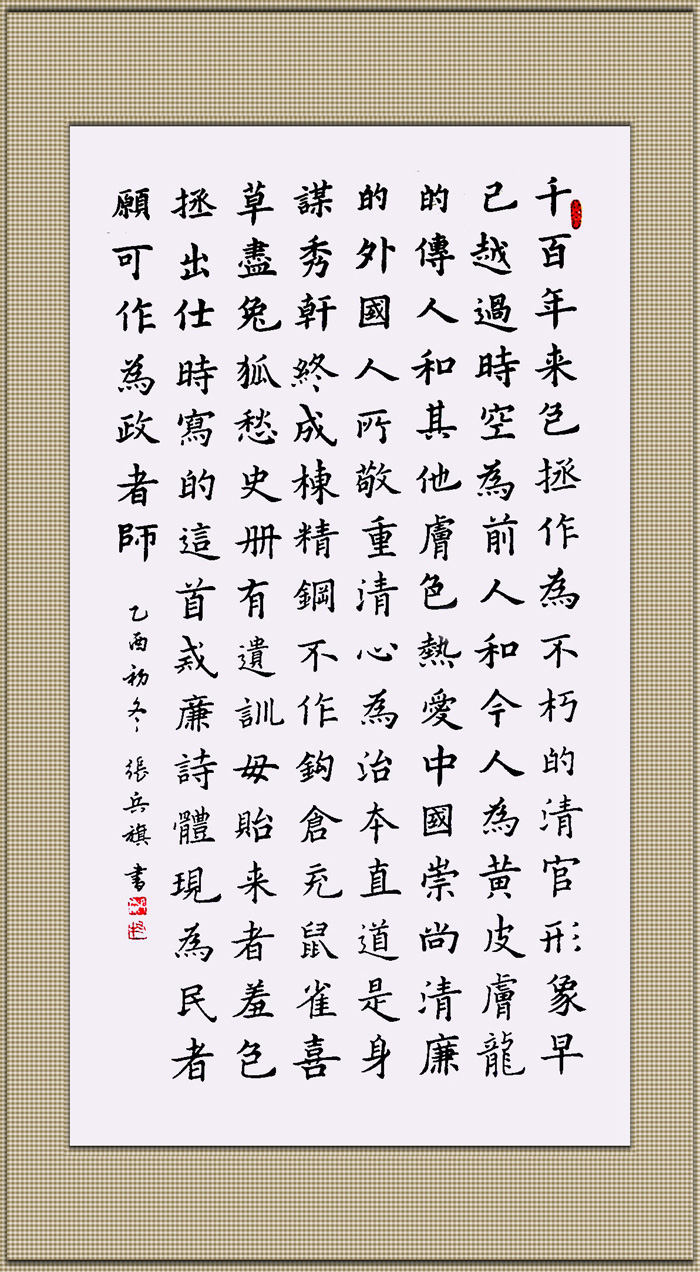 千百年来包拯作為不朽的清官形象早
已越過時空為前人和今人為黄皮膚龍
的傳人和其他膚色熱愛中國崇尚清廉
的外國人所敬重清心為治本直道是身
謀秀軒終成棟精鋼不作鈎倉充鼠雀喜
草盡兔狐愁史册有遺訓毋貽来者羞包
拯出仕時寫的這首戒廉詩體現為民者
願可作為政者師 乙酉初冬 張兵旗 書